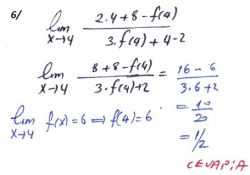 6/ lim x→4 (2.4+8-f(4))/(3.f(4)+4-2)
lim x→4 (8+8-f(4))/(3.f(4)+2) = (16-6)/(3.6+2)
lim x→4 f(x)=6 ⇒ f(4)=6 = 10/20
= 1/2
CEVAP:A